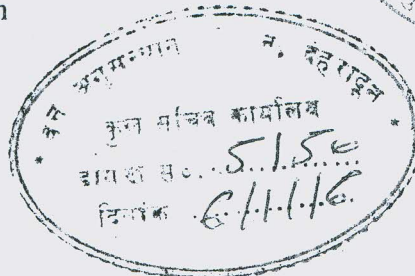 वन अनुसन्धान न, देहरादून
कुल सचिव कार्यालय
डायरी सं०..515e
दिनांक .6/1/16